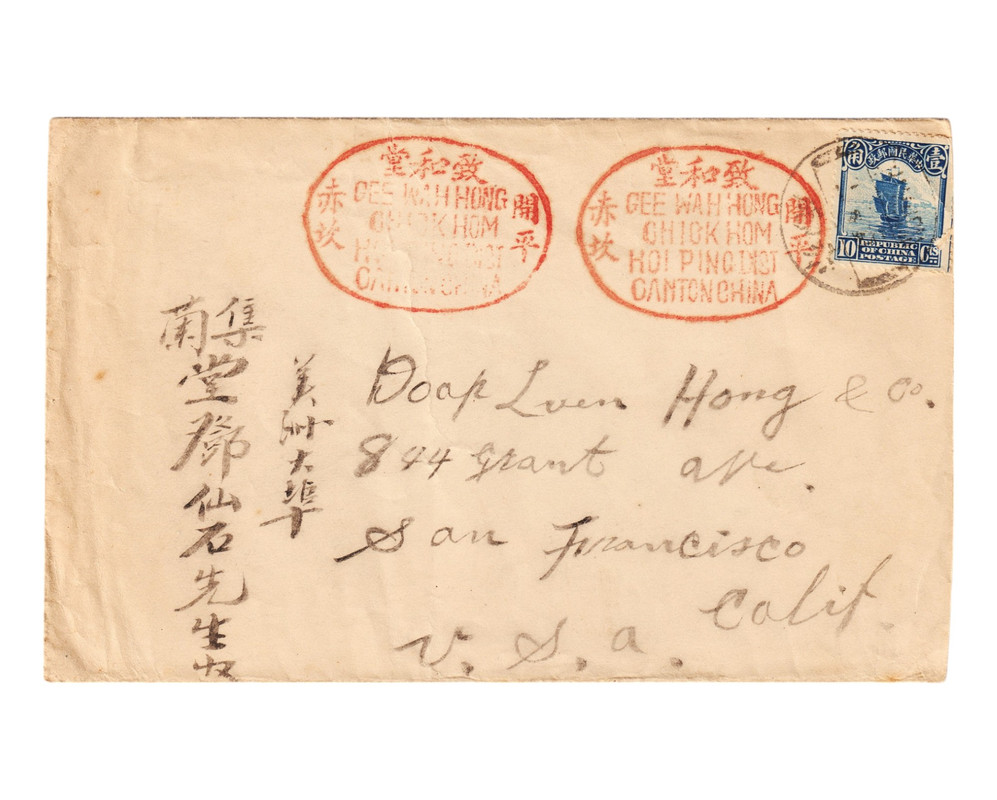 堂和致
赤坎
GEE WAH HONG
CHIOK HOM
HOI PING DIST
CANTON CHINA
開平
堂和致
赤坎
GEE WAH HONG
CHIOK HOM
HOI PING DIST
CANTON CHINA
開平
角
政郵國民華中
壹
10
REPUBLIC
OF CHINA
POSTAGE
Cs
Doap Luen Hong & Co.
844 Grant ave.
San Francisco
Calif.
U. S. a.
美洲大埠
集蘭堂鄧仙石先生收